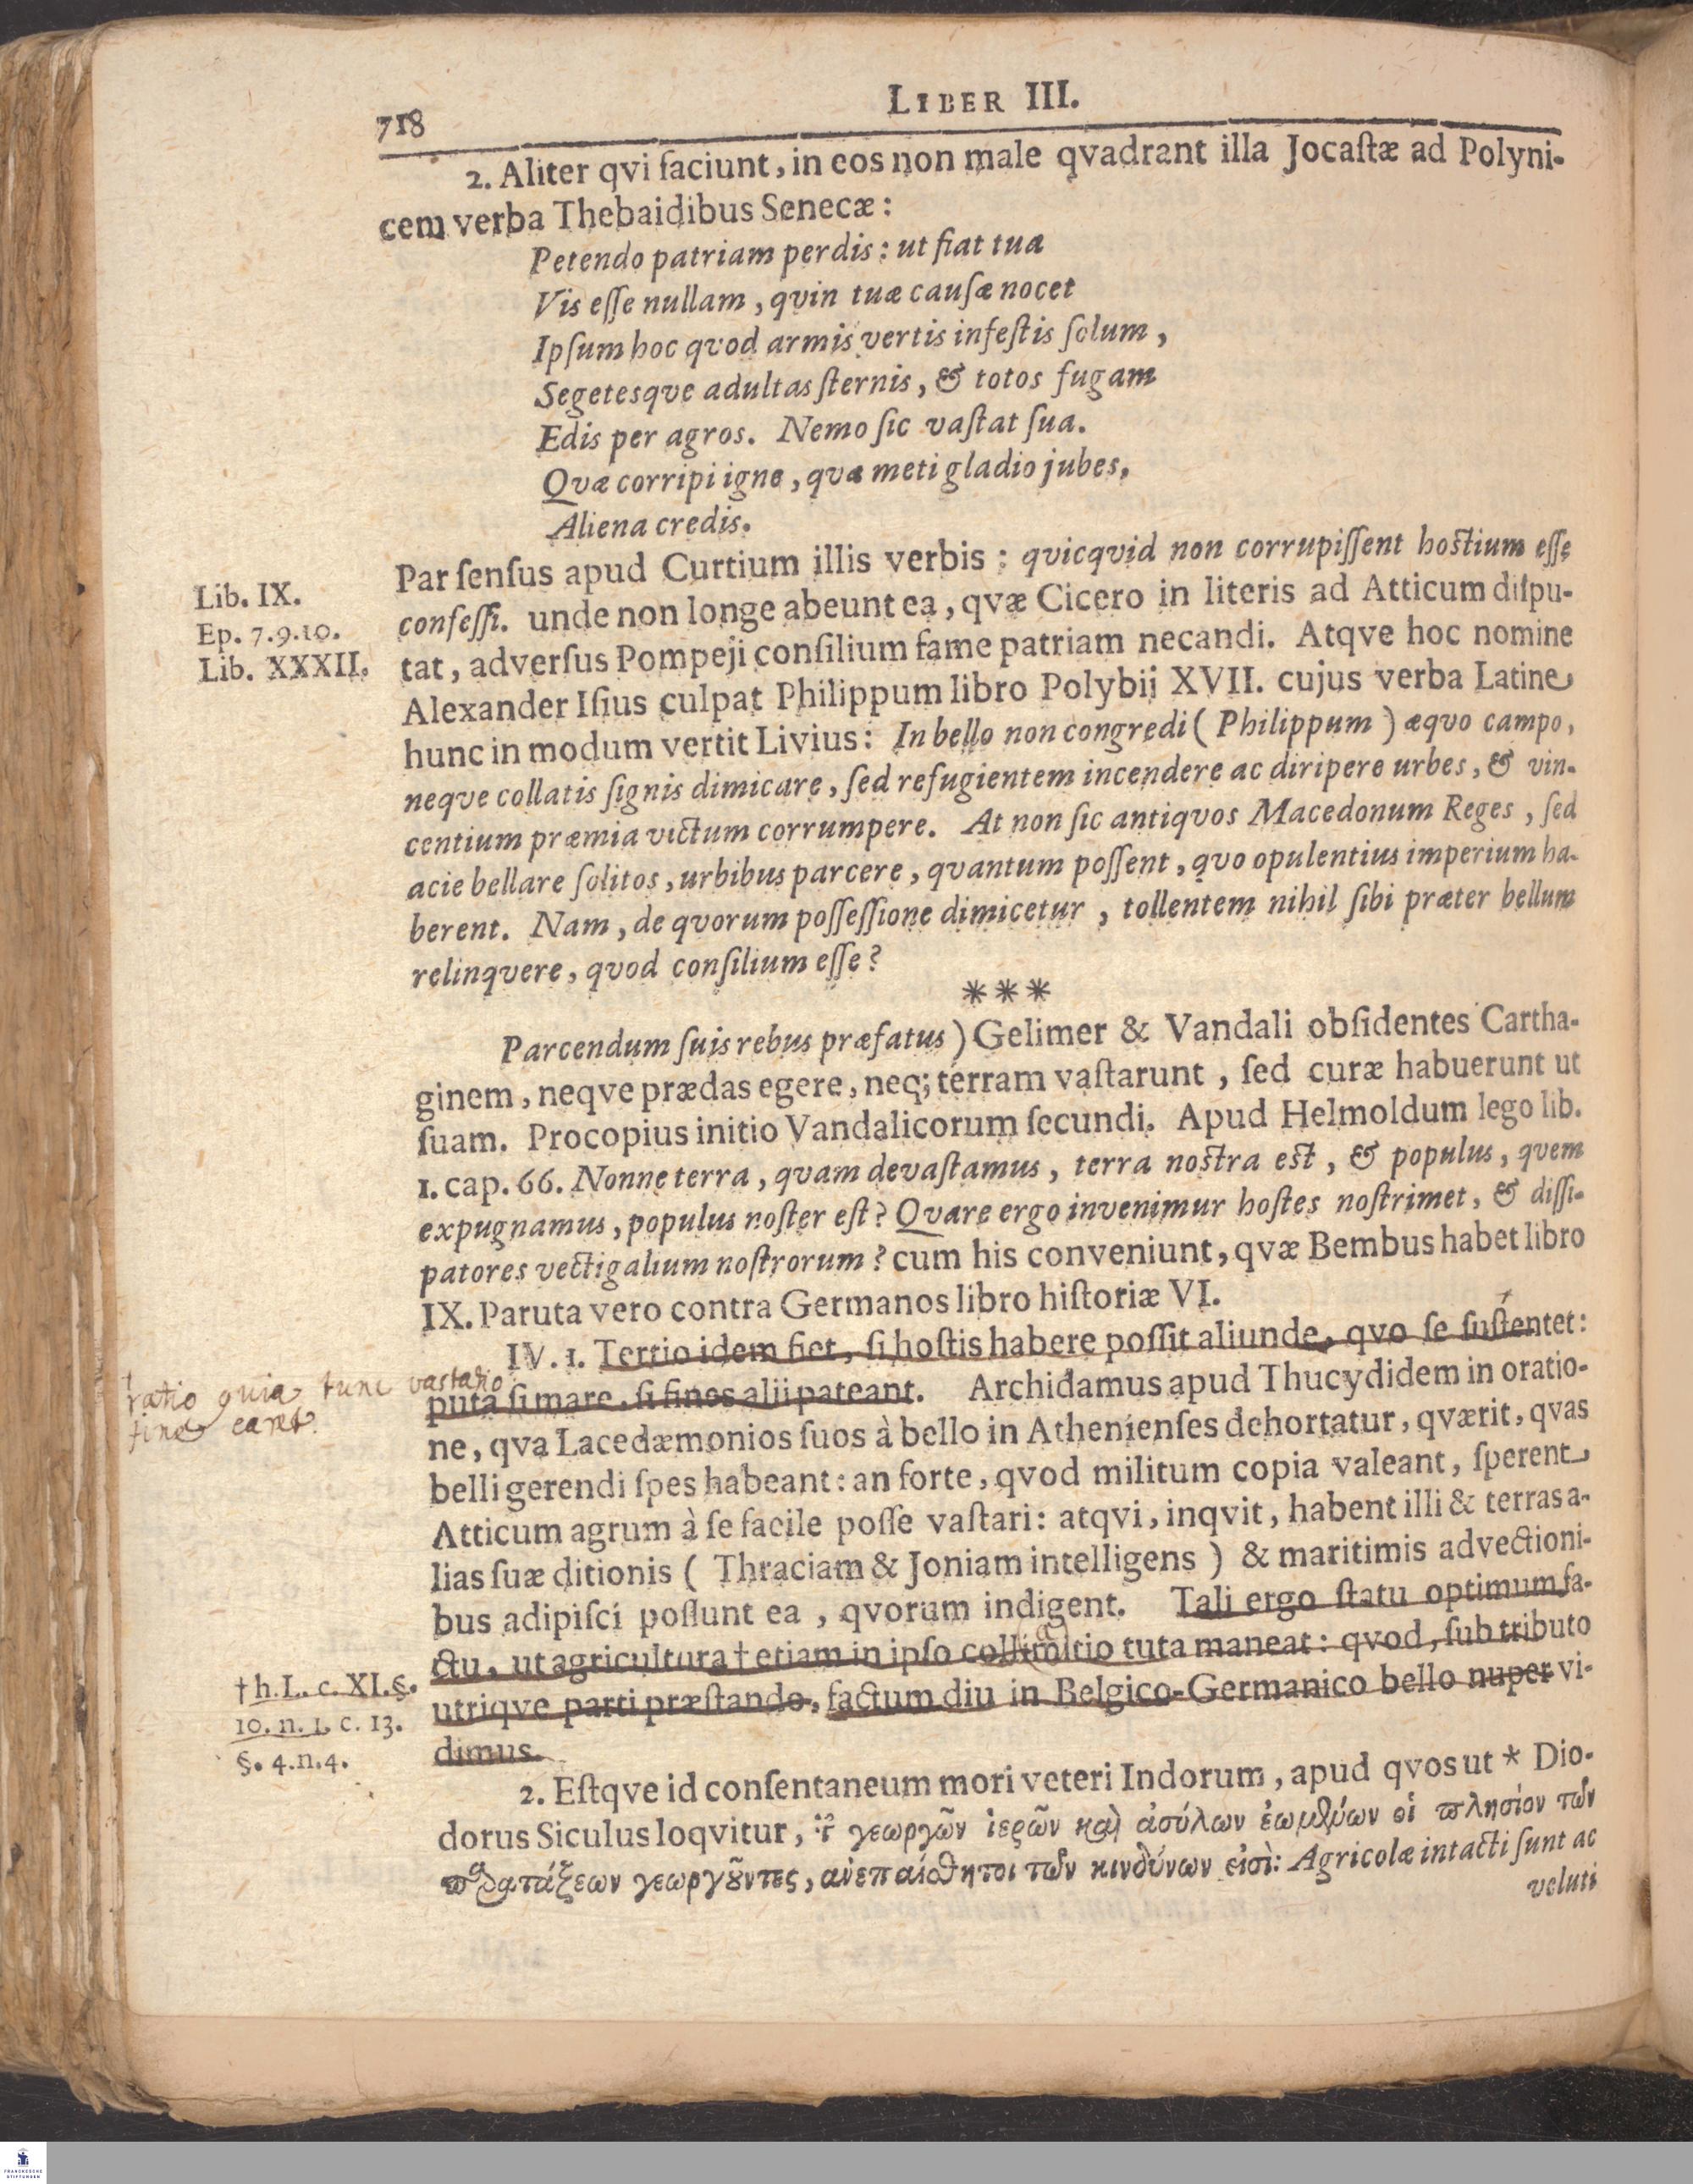 718
LIBER III.
2. Aliter qvi faciunt, in eos non male qvadrant illa Jocaſtæ ad Polyni-
cem verba Thebaidibus Senecæ:
Petendo patriam perdis: ut fiat tua
Vis eſſe nullam, qvin tuæ cauſæ nocet
Ipſum hoc qvod armis vertis infeſtis ſolum,
Segetesqve adultas ſternis, & totos fugam
Edis per agros. Nemo ſic vaſtat ſua.
Qvæ corripi igne, qvæ meti gladio jubes,
Aliena credis.
Par ſenſus apud Curtium illis verbis: qvicqvid non corrupiſſent hoſtium eſſe
confeſſi. unde non longe abeunt ea, qvæ Cicero in literis ad Atticum diſpu-
tat, adverſus Pompeji conſilium fame patriam necandi. Atqve hoc nomine
Alexander Iſius culpat Philippum libro Polybii XVII. cujus verba Latine
hunc in modum vertit Livius: In bello non congredi (Philippum) æqvo campo,
neqve collatis ſignis dimicare, ſed refugientem incendere ac diripere urbes, & vin-
centium præmia victum corrumpere. At non ſic antiqvos Macedonum Reges, ſed
acie bellare ſolitos, urbibus parcere, qvantum poſſent, qvo opulentius imperium ha-
berent. Nam, de qvorum poſſeſſione dimicetur, tollentem nihil ſibi præter bellum
relinqvere, qvod conſilium eſſe?
Lib. IX.
Ep. 7.9.10.
Lib. XXXII.
***
Parcendum ſuis rebus præfatus) Gelimer & Vandali obſidentes Cartha-
ginem, neqve prædas egere, neq; terram vaſtarunt, ſed curæ habuerunt ut
ſuam. Procopius initio Vandalicorum ſecundi. Apud Helmoldum lego lib.
1. cap. 66. Nonne terra, qvam devaſtamus, terra noſtra eſt, & populus, qvem
expugnamus, populus noſter eſt? Qvare ergo invenimur hoſtes noſtrimet, & diſſi-
patores vectigalium noſtrorum? cum his conveniunt, qvæ Bembus habet libro
IX. Paruta vero contra Germanos libro hiſtoriæ VI.
IV. 1. Tertio idem fiet, ſi hoſtis habere poſſit aliunde, qvo ſe ſuſtentet:
puta ſi mare, ſi fines alii pateant. Archidamus apud Thucydidem in oratio-
ne, qva Lacedæmonios ſuos à bello in Athenienſes dehortatur, qværit, qvas
belli gerendi ſpes habeant: an forte, qvod militum copia valeant, ſperent
Atticum agrum à ſe facile poſſe vaſtari: atqvi, inqvit, habent illi & terras a-
lias ſuæ ditionis (Thraciam & Joniam intelligens) & maritimis advectioni-
bus adipiſci poſſunt ea, qvorum indigent. Tali ergo ſtatu optimum fa-
ctu, ut agricultura † etiam in ipſo collimitio tuta maneat: qvod, ſub tributo
utriqve parti præſtando, factum diu in Belgico-Germanico bello nuper vi-
dimus.
† ratio quia tunc vastatio
fine caret.
† h. L. c. XI. §.
10. n. 1. c. 13.
§. 4. n. 4.
2. Eſtqve id conſentaneum mori veteri Indorum, apud qvos ut * Dio-
dorus Siculus loqvitur, τῶν γεωργῶν ἱερῶν καὶ ἀσύλων ἐωμένων οἱ πλησίον τῶν
παρατάξεων γεωργοῦντες, ἀνεπαίσθητοι τῶν κινδύνων εἰσὶ: Agricolæ intacti ſunt ac
veluti
FRANCKESCHE
STIFTUNGEN